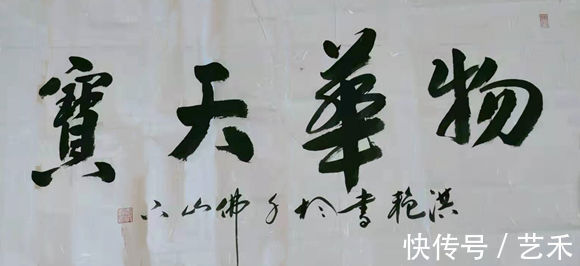 物華天寶
洪艳書於千佛山下
快传号 / 艺禾